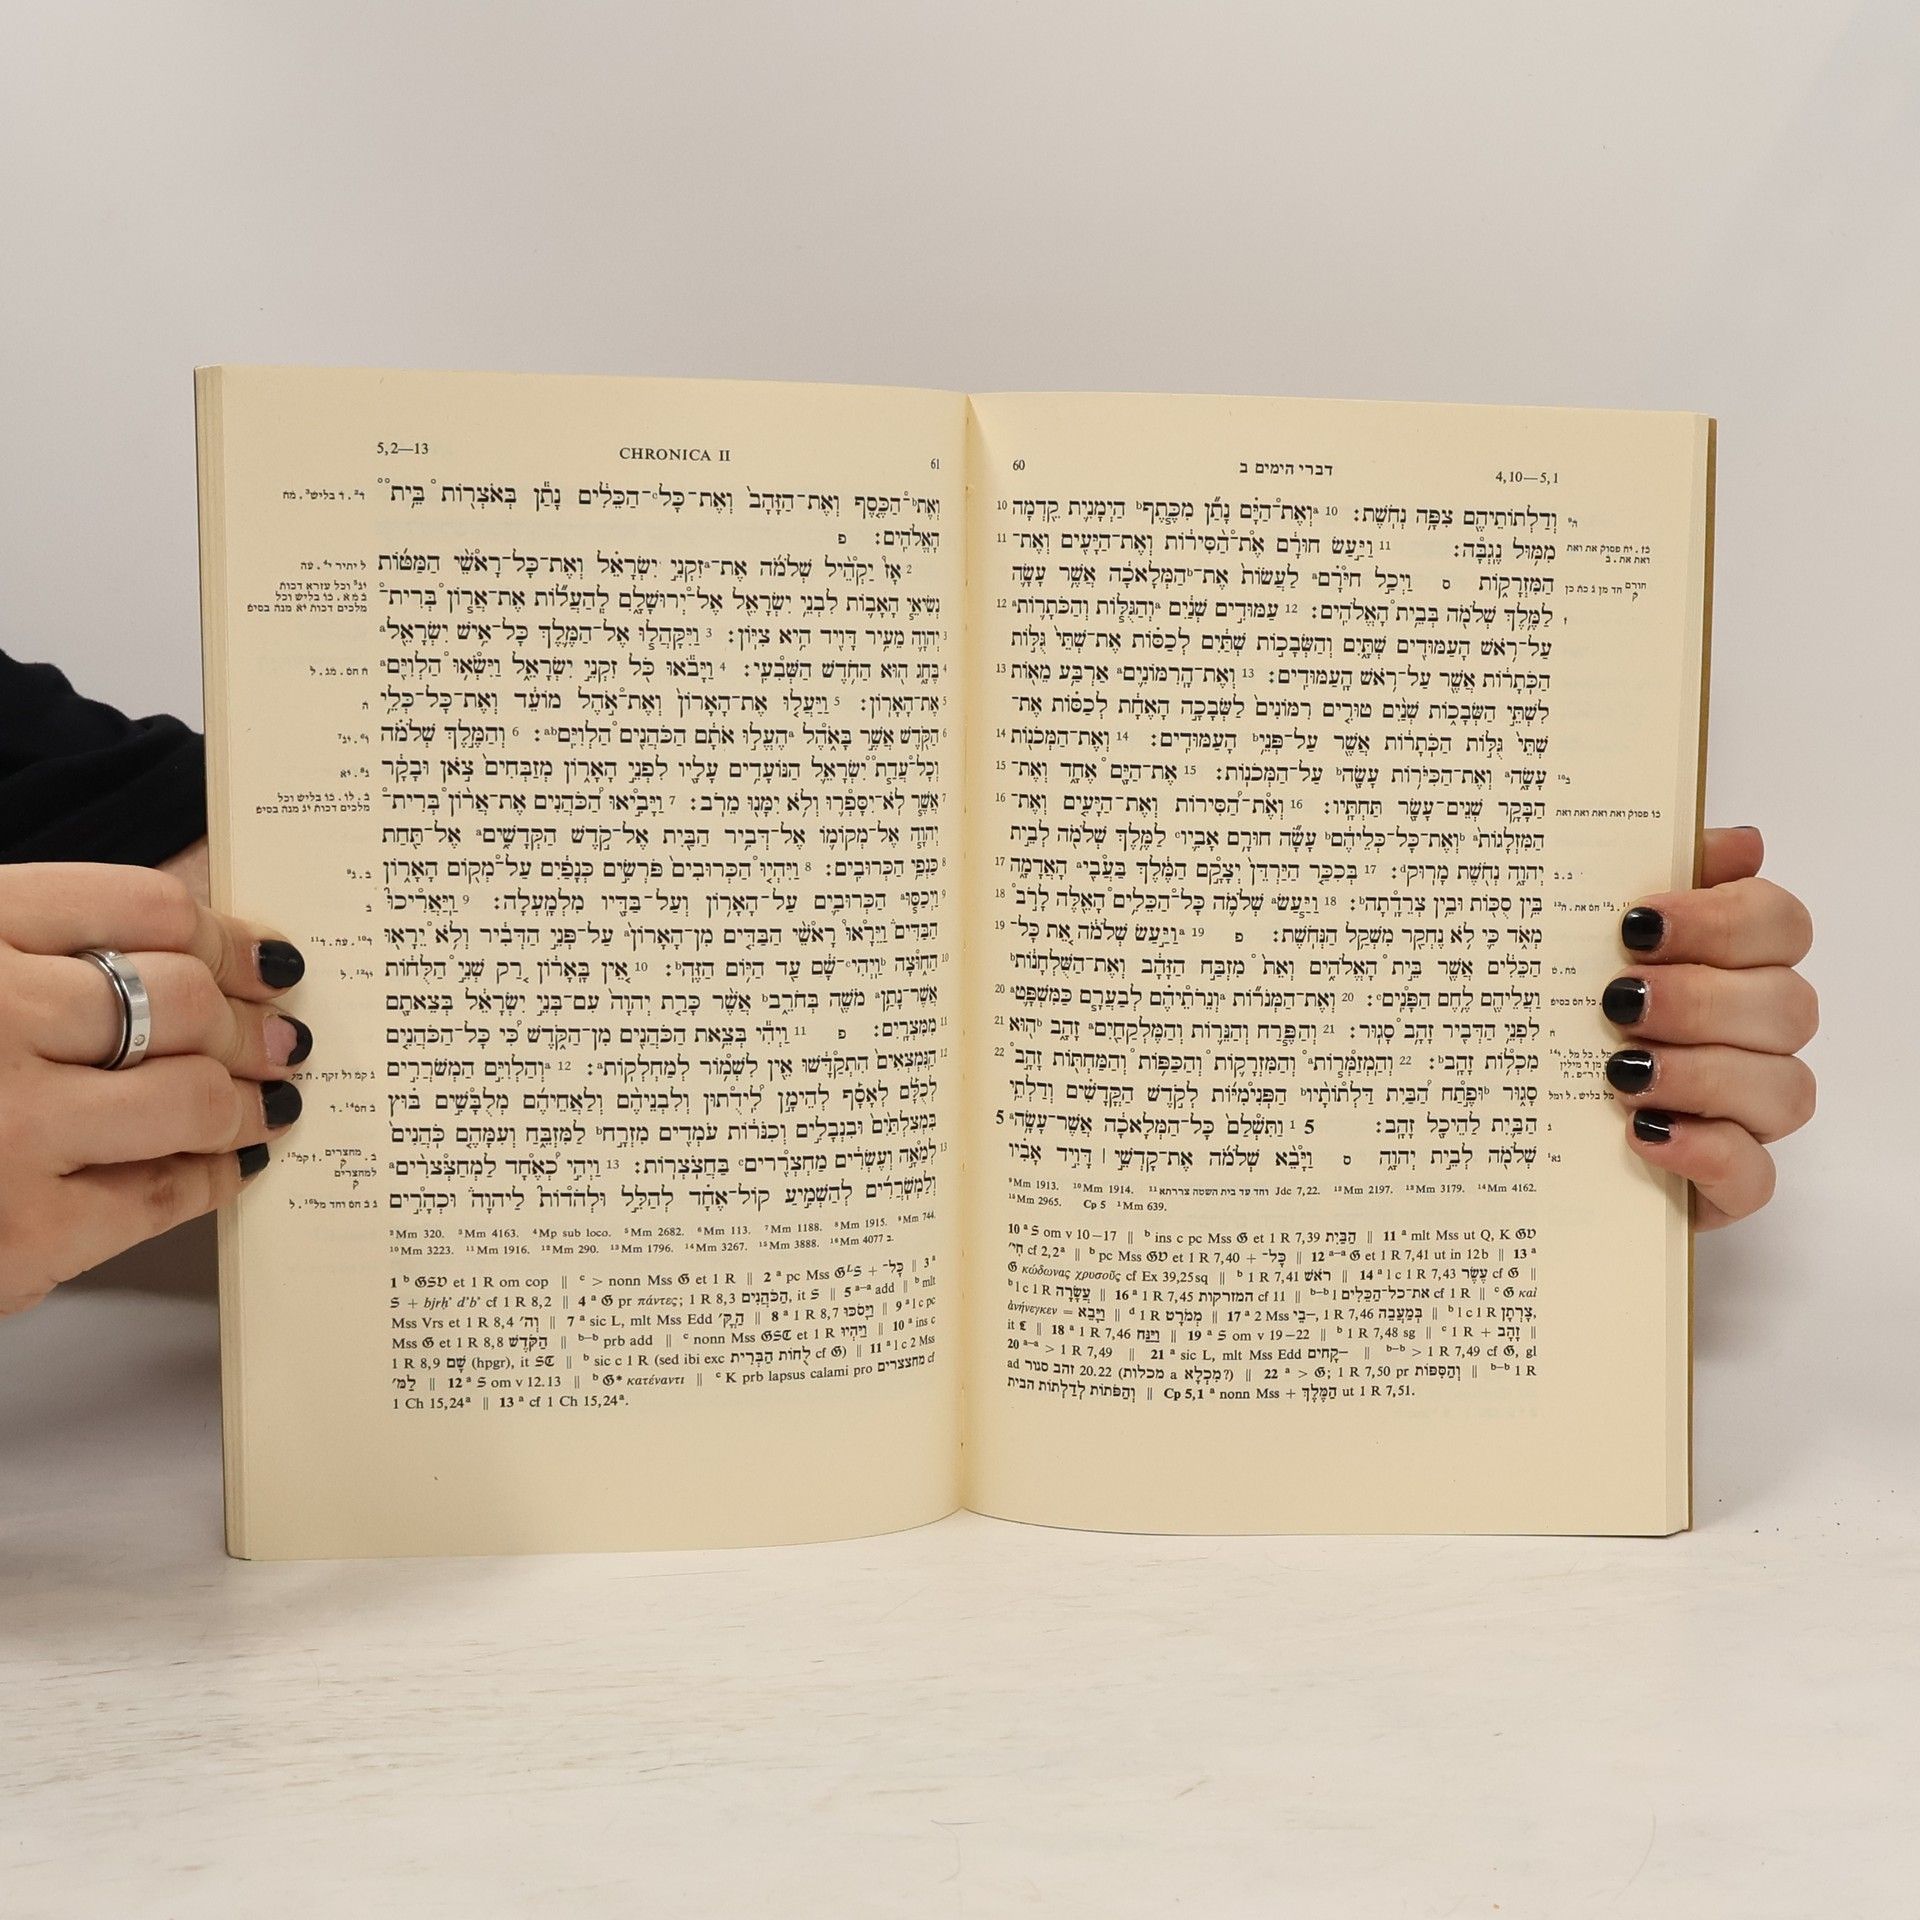 60 דברי הימים ב 4,10—5,1
וְדַלְתוֹתֵיהֶם צִפָּה נְחֹשֶׁת׃ 10 ᵃוְאֶת־הַיָּם נָתַן מִכֶּתֶףᵇ הַיְמָנִית קֵדְמָה 10
מִמּוּל נֶגְבָּה׃ 11 וַיַּעַשׂ חוּרָם אֶת־הַסִּירוֹת וְאֶת־הַיָּעִים וְאֶת־ 11
הַמִּזְרָקוֹת ס וַיְכַל חִירָםᵃ לַעֲשׂוֹת אֶת־ᵇהַמְּלָאכָה אֲשֶׁר עָשָׂה
לַמֶּלֶךְ שְׁלֹמֹה בְּבֵית הָאֱלֹהִים׃ 12 עַמּוּדִים שְׁנַיִם ᵃוְהַגֻּלּוֹת וְהַכֹּתָרוֹתᵃ 12
עַל־רֹאשׁ הָעַמּוּדִים שְׁתָּיִם וְהַשְּׂבָכוֹת שְׁתַּיִם לְכַסּוֹת אֶת־שְׁתֵּי גֻּלּוֹת
הַכֹּתָרוֹת אֲשֶׁר עַל־רֹאשׁ הָעַמּוּדִים׃ 13 וְאֶת־הָרִמּוֹנִיםᵃ אַרְבַּע מֵאוֹת 13
לִשְׁתֵּי הַשְּׂבָכוֹת שְׁנַיִם טוּרִים רִמּוֹנִים לַשְּׂבָכָה הָאֶחָת לְכַסּוֹת אֶת־
שְׁתֵּי גֻּלּוֹת הַכֹּתָרוֹת אֲשֶׁר עַל־פְּנֵיᵇ הָעַמּוּדִים׃ 14 וְאֶת־הַמְּכֹנוֹת 14
עָשָׂהᵃ וְאֶת־הַכִּיֹּרוֹת עָשָׂהᵇ עַל־הַמְּכֹנוֹת׃ 15 אֶת־הַיָּם אֶחָד וְאֶת־ 15
הַבָּקָר שְׁנֵים־עָשָׂר תַּחְתָּיו׃ 16 וְאֶת־הַסִּירוֹת וְאֶת־הַיָּעִים וְאֶת־ 16
הַמִּזְלָגוֹתᵃ ᵇוְאֶת־כָּל־כְּלֵיהֶםᵇ עָשָׂה חוּרָם אָבִיוᶜ לַמֶּלֶךְ שְׁלֹמֹה לְבֵית
יְהוָה נְחֹשֶׁת מָרוּקᵈ׃ 17 בְּכִכַּר הַיַּרְדֵּן יְצָקָם הַמֶּלֶךְ בַּעֲבִיᵃ הָאֲדָמָה 17
בֵּין סֻכּוֹת וּבֵין צְרֵדָתָהᵇ׃ 18 וַיַּעַשׂᵃ שְׁלֹמֹה כָּל־הַכֵּלִים הָאֵלֶּה לָרֹב 18
מְאֹד כִּי לֹא נֶחְקַר מִשְׁקַל הַנְּחֹשֶׁת׃ פ 19 ᵃוַיַּעַשׂ שְׁלֹמֹה אֵת כָּל־ 19
הַכֵּלִים אֲשֶׁר בֵּית הָאֱלֹהִים וְאֵת מִזְבַּח הַזָּהָב וְאֶת־הַשֻּׁלְחָנוֹתᵇ
וַעֲלֵיהֶם לֶחֶם הַפָּנִיםᶜ׃ 20 וְאֶת־הַמְּנֹרוֹת ᵃוְנֵרֹתֵיהֶם לְבַעֲרָם כַּמִּשְׁפָּטᵃ 20
לִפְנֵי הַדְּבִיר זָהָב סָגוּר׃ 21 וְהַפֶּרַח וְהַנֵּרוֹת וְהַמֶּלְקַחַיִםᵃ זָהָב ᵇהוּא 21
מִכְלוֹת זָהָבᵇ׃ 22 וְהַמְזַמְּרוֹתᵃ וְהַמִּזְרָקוֹת וְהַכַּפּוֹת וְהַמַּחְתּוֹת זָהָב 22
סָגוּר ᵇוּפֶתַח הַבַּיִת דַּלְתוֹתָיוᵇ הַפְּנִימִיּוֹת לְקֹדֶשׁ הַקֳּדָשִׁים וְדַלְתֵי
הַבַּיִת לַהֵיכָל זָהָב׃ 5 1 וַתִּשְׁלַם כָּל־הַמְּלָאכָה אֲשֶׁר־עָשָׂהᵃ 5
שְׁלֹמֹה לְבֵית יְהוָה ס וַיָּבֵא שְׁלֹמֹה אֶת־קָדְשֵׁי ׀ דָּוִיד אָבִיו
⁹Mm 1913. ¹⁰Mm 1914. ¹¹ וחד עד בית השטה צררתא Jdc 7,22. ¹²Mm 2197. ¹³Mm 3179. ¹⁴Mm 4162.
¹⁵Mm 2965. Cp 5 ¹Mm 639.
10 ᵃ S om v 10—17 ‖ ᵇ ins c pc Mss 𝔊 et 1 R 7,39 הַבַּיִת ‖ 11 ᵃ mlt Mss ut Q, K 𝔊𝔙
חִי׳ cf 2,2ᵃ ‖ ᵇ pc Mss 𝔊𝔙 et 1 R 7,40 + כָּל־ ‖ 12 ᵃ⁻ᵃ 𝔊 et 1 R 7,41 ut in 12b ‖ 13 ᵃ
𝔊 κώδωνας χρυσοῦς cf Ex 39,25sq ‖ ᵇ 1 R 7,41 ראֹשׁ ‖ 14 ᵃ l c 1 R 7,43 עֶשֶׂר cf 𝔊 ‖
ᵇ l c 1 R עֲשָׂרָה ‖ 16 ᵃ 1 R 7,45 המזרקות cf 11 ‖ ᵇ⁻ᵇ l את־כל־הַכֵּלִים cf 1 R ‖ ᶜ 𝔊 καὶ
ἀνήνεγκεν = וַיָּבֵא ‖ ᵈ 1 R מְמֹרָט ‖ 17 ᵃ 2 Mss בֵי—, 1 R 7,46 בְּמַעֲבֵה ‖ ᵇ l c 1 R צָרְתָן,
it ‖ 18 ᵃ 1 R 7,46 וַיַּנַּח ‖ 19 ᵃ S om v 19—22 ‖ ᵇ 1 R 7,48 sg ‖ ᶜ 1 R + זָהָב ‖
20 ᵃ⁻ᵃ > 1 R 7,49 ‖ 21 ᵃ sic L, mlt Mss Edd קָחים— ‖ ᵇ⁻ᵇ > 1 R 7,49 cf 𝔊, gl
ad זהב סגור 20.22 (מכלות a מִכְלָא?) ‖ 22 ᵃ > 𝔊; 1 R 7,50 pr וְהַסִּפּוֹת ‖ ᵇ⁻ᵇ 1 R
וְהַפֹּתוֹת לְדַלְתוֹת הבית ‖ Cp 5,1 ᵃ nonn Mss + הַמֶּלֶךְ ut 1 R 7,51.
5,2—13 CHRONICA II 61
וְאֶתᵇ־הַכֶּסֶף וְאֶת־הַזָּהָב וְאֶת־כָּל־ᶜהַכֵּלִים נָתַן בְּאֹצְרוֹת בֵּית
הָאֱלֹהִים׃ פ
2 אָז יַקְהֵיל שְׁלֹמֹה אֶת־ᵃזִקְנֵי יִשְׂרָאֵל וְאֶת־כָּל־רָאשֵׁי הַמַּטּוֹת
נְשִׂיאֵי הָאָבוֹת לִבְנֵי יִשְׂרָאֵל אֶל־יְרוּשָׁלִָם לְהַעֲלוֹת אֶת־אֲרוֹן בְּרִית־
3 יְהוָה מֵעִיר דָּוִיד הִיא צִיּוֹן׃ 3 וַיִּקָּהֲלוּ אֶל־הַמֶּלֶךְ כָּל־אִישׁ יִשְׂרָאֵלᵃ
4 בֶּחָג הוּא הַחֹדֶשׁ הַשְּׁבִעִי׃ 4 וַיָּבֹאוּ כֹּל זִקְנֵי יִשְׂרָאֵל וַיִּשְׂאוּ הַלְוִיִּםᵃ
5 אֶת־הָאָרוֹן׃ 5 וַיַּעֲלוּ אֶת־הָאָרוֹן וְאֶת־אֹהֶל מוֹעֵד וְאֶת־כָּל־כְּלֵי
6 הַקֹּדֶשׁ אֲשֶׁר בָּאֹהֶל ᵃהֶעֱלוּ אֹתָם הַכֹּהֲנִים הַלְוִיִּםᵃᵇ׃ 6 וְהַמֶּלֶךְ שְׁלֹמֹה
וְכָל־עֲדַת יִשְׂרָאֵל הַנּוֹעָדִים עָלָיו לִפְנֵי הָאָרוֹן מְזַבְּחִים צֹאן וּבָקָר
7 אֲשֶׁר לֹא־יִסָּפְרוּ וְלֹא יִמָּנוּ מֵרֹב׃ 7 וַיָּבִיאוּ הַכֹּהֲנִים אֶת־אֲרוֹן בְּרִית־
יְהוָה אֶל־מְקוֹמוֹ אֶל־דְּבִיר הַבַּיִת אֶל־קֹדֶשׁ הַקְּדָשִׁיםᵃ אֶל־תַּחַת
8 כַּנְפֵי הַכְּרוּבִים׃ 8 וַיִּהְיוּ הַכְּרוּבִים פֹּרְשִׂים כְּנָפַיִם עַל־מְקוֹם הָאָרוֹן
9 וַיְכַסּוּᵃ הַכְּרוּבִים עַל־הָאָרוֹן וְעַל־בַּדָּיו מִלְמָעְלָה׃ 9 וַיַּאֲרִיכוּ
הַבַּדִּים וַיֵּרָאוּ רָאשֵׁי הַבַּדִּים מִן־הָאָרוֹןᵃ עַל־פְּנֵי הַדְּבִיר וְלֹא יֵרָאוּ
10 הַחוּצָה ᵇוַיְהִיᶜ־שָׁם עַד הַיּוֹם הַזֶּהᵇ׃ 10 אֵין בָּאָרוֹן רַק שְׁנֵי הַלֻּחוֹת
אֲשֶׁר־נָתַןᵃ מֹשֶׁה בְּחֹרֵבᵇ אֲשֶׁר כָּרַת יְהוָה עִם־בְּנֵי יִשְׂרָאֵל בְּצֵאתָם
11 מִמִּצְרָיִם׃ פ 11 וַיְהִי בְּצֵאת הַכֹּהֲנִים מִן־הַקֹּדֶשׁ כִּי כָּל־הַכֹּהֲנִים
12 הַנִּמְצְאִים הִתְקַדָּשׁוּ אֵין לִשְׁמוֹר לְמַחְלְקוֹתᵃ׃ 12 ᵃוְהַלְוִיִּם הַמְשֹׁרֲרִים
לְכֻלָּם לְאָסָף לְהֵימָן לִידֻתוּן וְלִבְנֵיהֶם וְלַאֲחֵיהֶם מְלֻבָּשִׁים בּוּץ
בִּמְצִלְתַּיִם וּבִנְבָלִים וְכִנֹּרוֹת עֹמְדִים מִזְרָחᵇ לַמִּזְבֵּחַ וְעִמָּהֶם כֹּהֲנִים
13 לְמֵאָה וְעֶשְׂרִים מַחְצְרִריםᶜ בַּחֲצֹצְרוֹת׃ 13 וַיְהִי כְאֶחָד לַמְחַצְּצרִיםᵃ
וְלַמְשֹׁרֲרִים לְהַשְׁמִיעַ קוֹל־אֶחָד לְהַלֵּל וּלְהֹדוֹת לַיהוָה וּכְהָרִים
²Mm 320. ³Mm 4163. ⁴Mp sub loco. ⁵Mm 2682. ⁶Mm 113. ⁷Mm 1188. ⁸Mm 1915. ⁹Mm 744.
¹⁰Mm 3223. ¹¹Mm 1916. ¹²Mm 290. ¹³Mm 1796. ¹⁴Mm 3267. ¹⁵Mm 3888. ¹⁶Mm 4077 2.
1 ᵇ 𝔊S𝔙 et 1 R om cop ‖ ᶜ > nonn Mss 𝔊 et 1 R ‖ 2 ᵃ pc Mss 𝔊ᴸS + כָּל־ ‖ 3 ᵃ
S + bjrḥʾ dʾbʾ cf 1 R 8,2 ‖ 4 ᵃ 𝔊 pr πάντες; 1 R 8,3 הַכֹּהֲנִים, it S ‖ 5 ᵃ⁻ᵃ add ‖ ᵇ mlt
Mss Vrs et 1 R 8,4 וְה׳ ‖ 7 ᵃ sic L, mlt Mss Edd הַקֳּ׳ ‖ 8 ᵃ 1 R 8,7 וַיָּסֹכּוּ ‖ 9 ᵃ l c pc
Mss 𝔊 et 1 R 8,8 הַקֹּדֶשׁ ‖ ᵇ⁻ᵇ prb add ‖ ᶜ nonn Mss 𝔊S𝔗 et 1 R וַיִּהְיוּ ‖ 10 ᵃ ins c
1 R 8,9 שָׁם (hpgr), it S𝔗 ‖ ᵇ sic c 1 R (sed ibi exc לֻחוֹת הַבְּרִית cf 𝔊) ‖ 11 ᵃ l c 2 Mss
לַמּ׳ ‖ 12 ᵃ S om v 12.13 ‖ ᵇ 𝔊* κατέναντι ‖ ᶜ K prb lapsus calami pro מחצצרים cf
1 Ch 15,24ᵃ ‖ 13 ᵃ cf 1 Ch 15,24ᵃ.